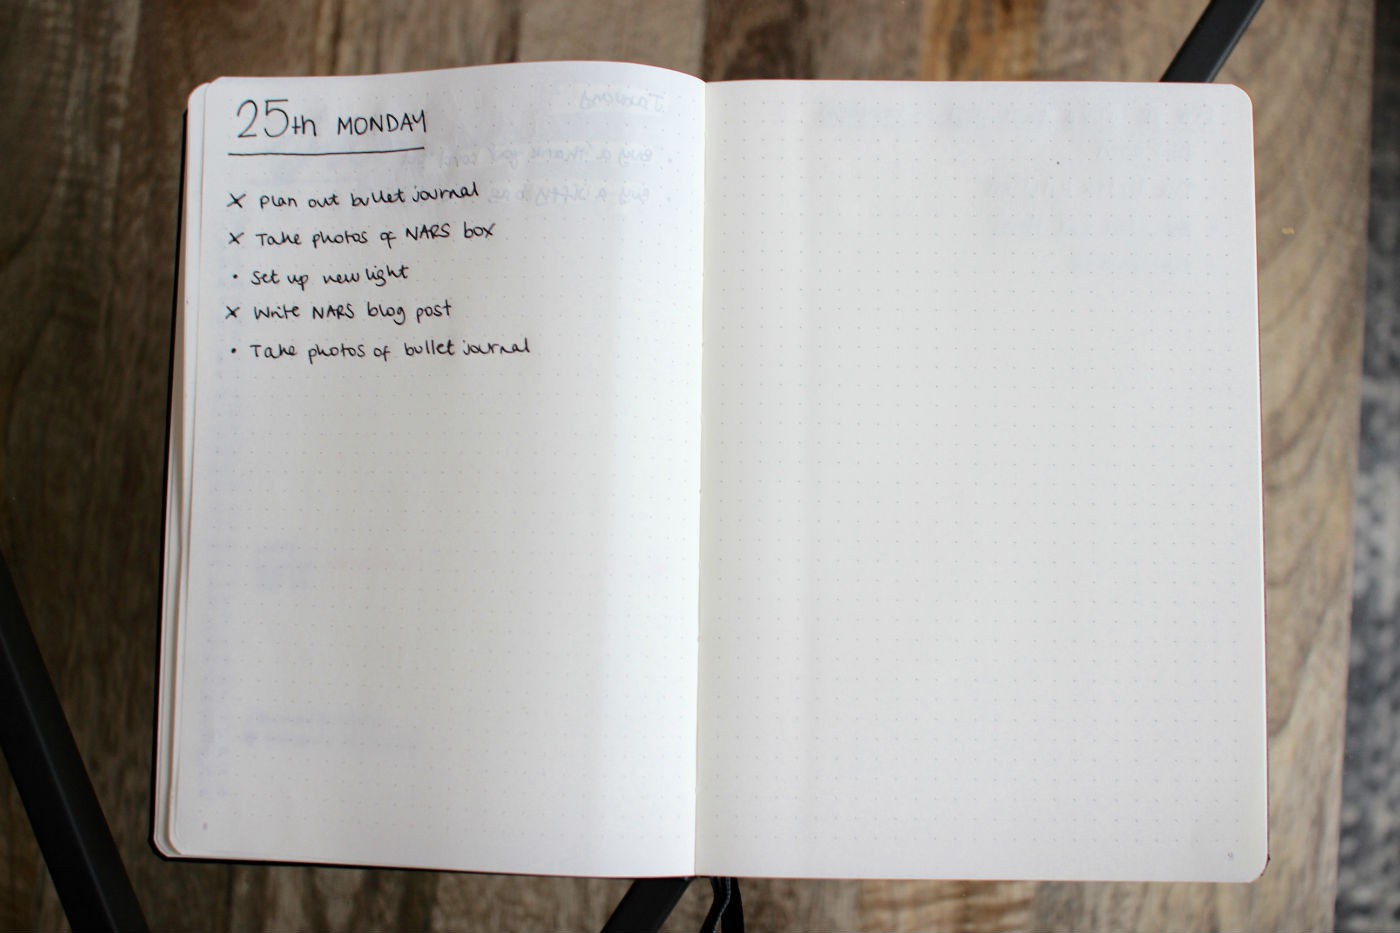 25th MONDAY
× Plan out bullet journal
× Take photos of NARS box
• Set up new light
× Write NARS blog post
• Take photos of bullet journal